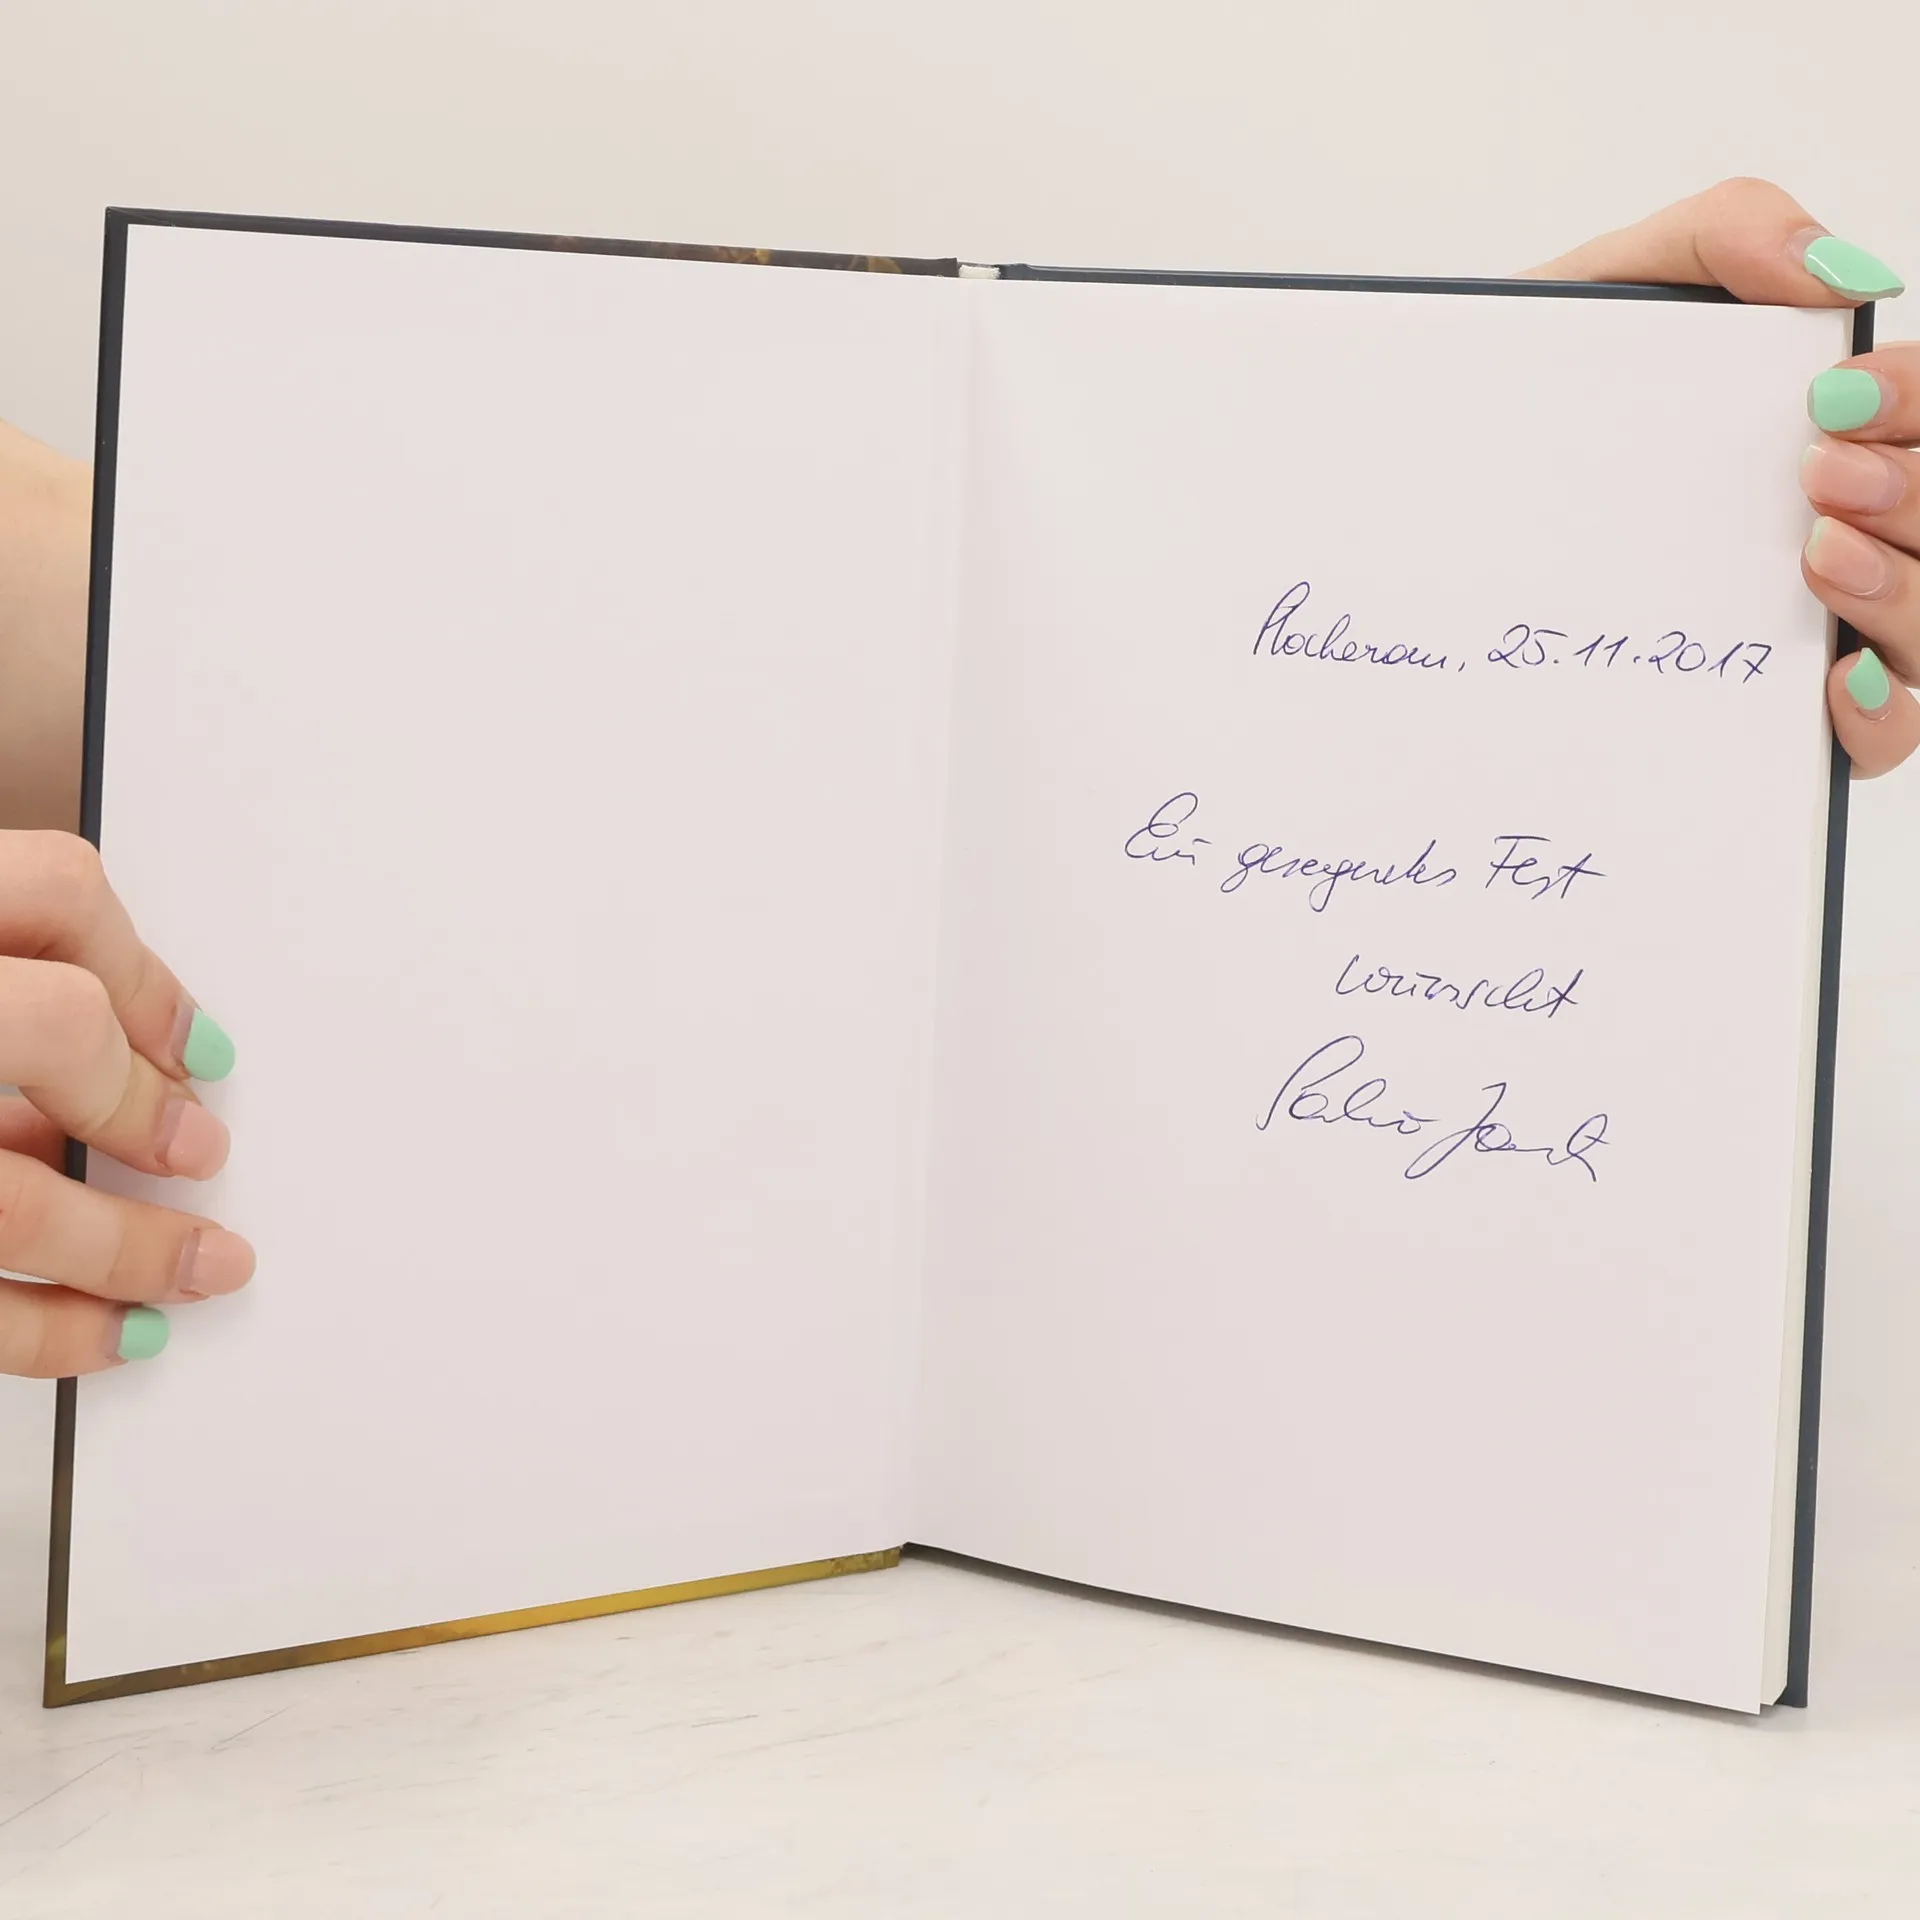 Stockerau, 25.11.2017
Ein gesegnetes Fest
wünscht